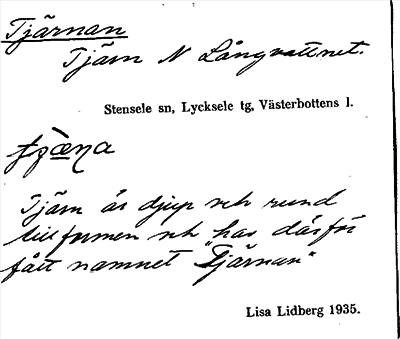 Tjärnan
Tjärn N Långvattnet.
Stensele sn, Lycksele tg, Västerbottens l.
Tjärn är djup och rund
till formen och har därför
fått namnet "Tjärnan"
Lisa Lidberg 1935.